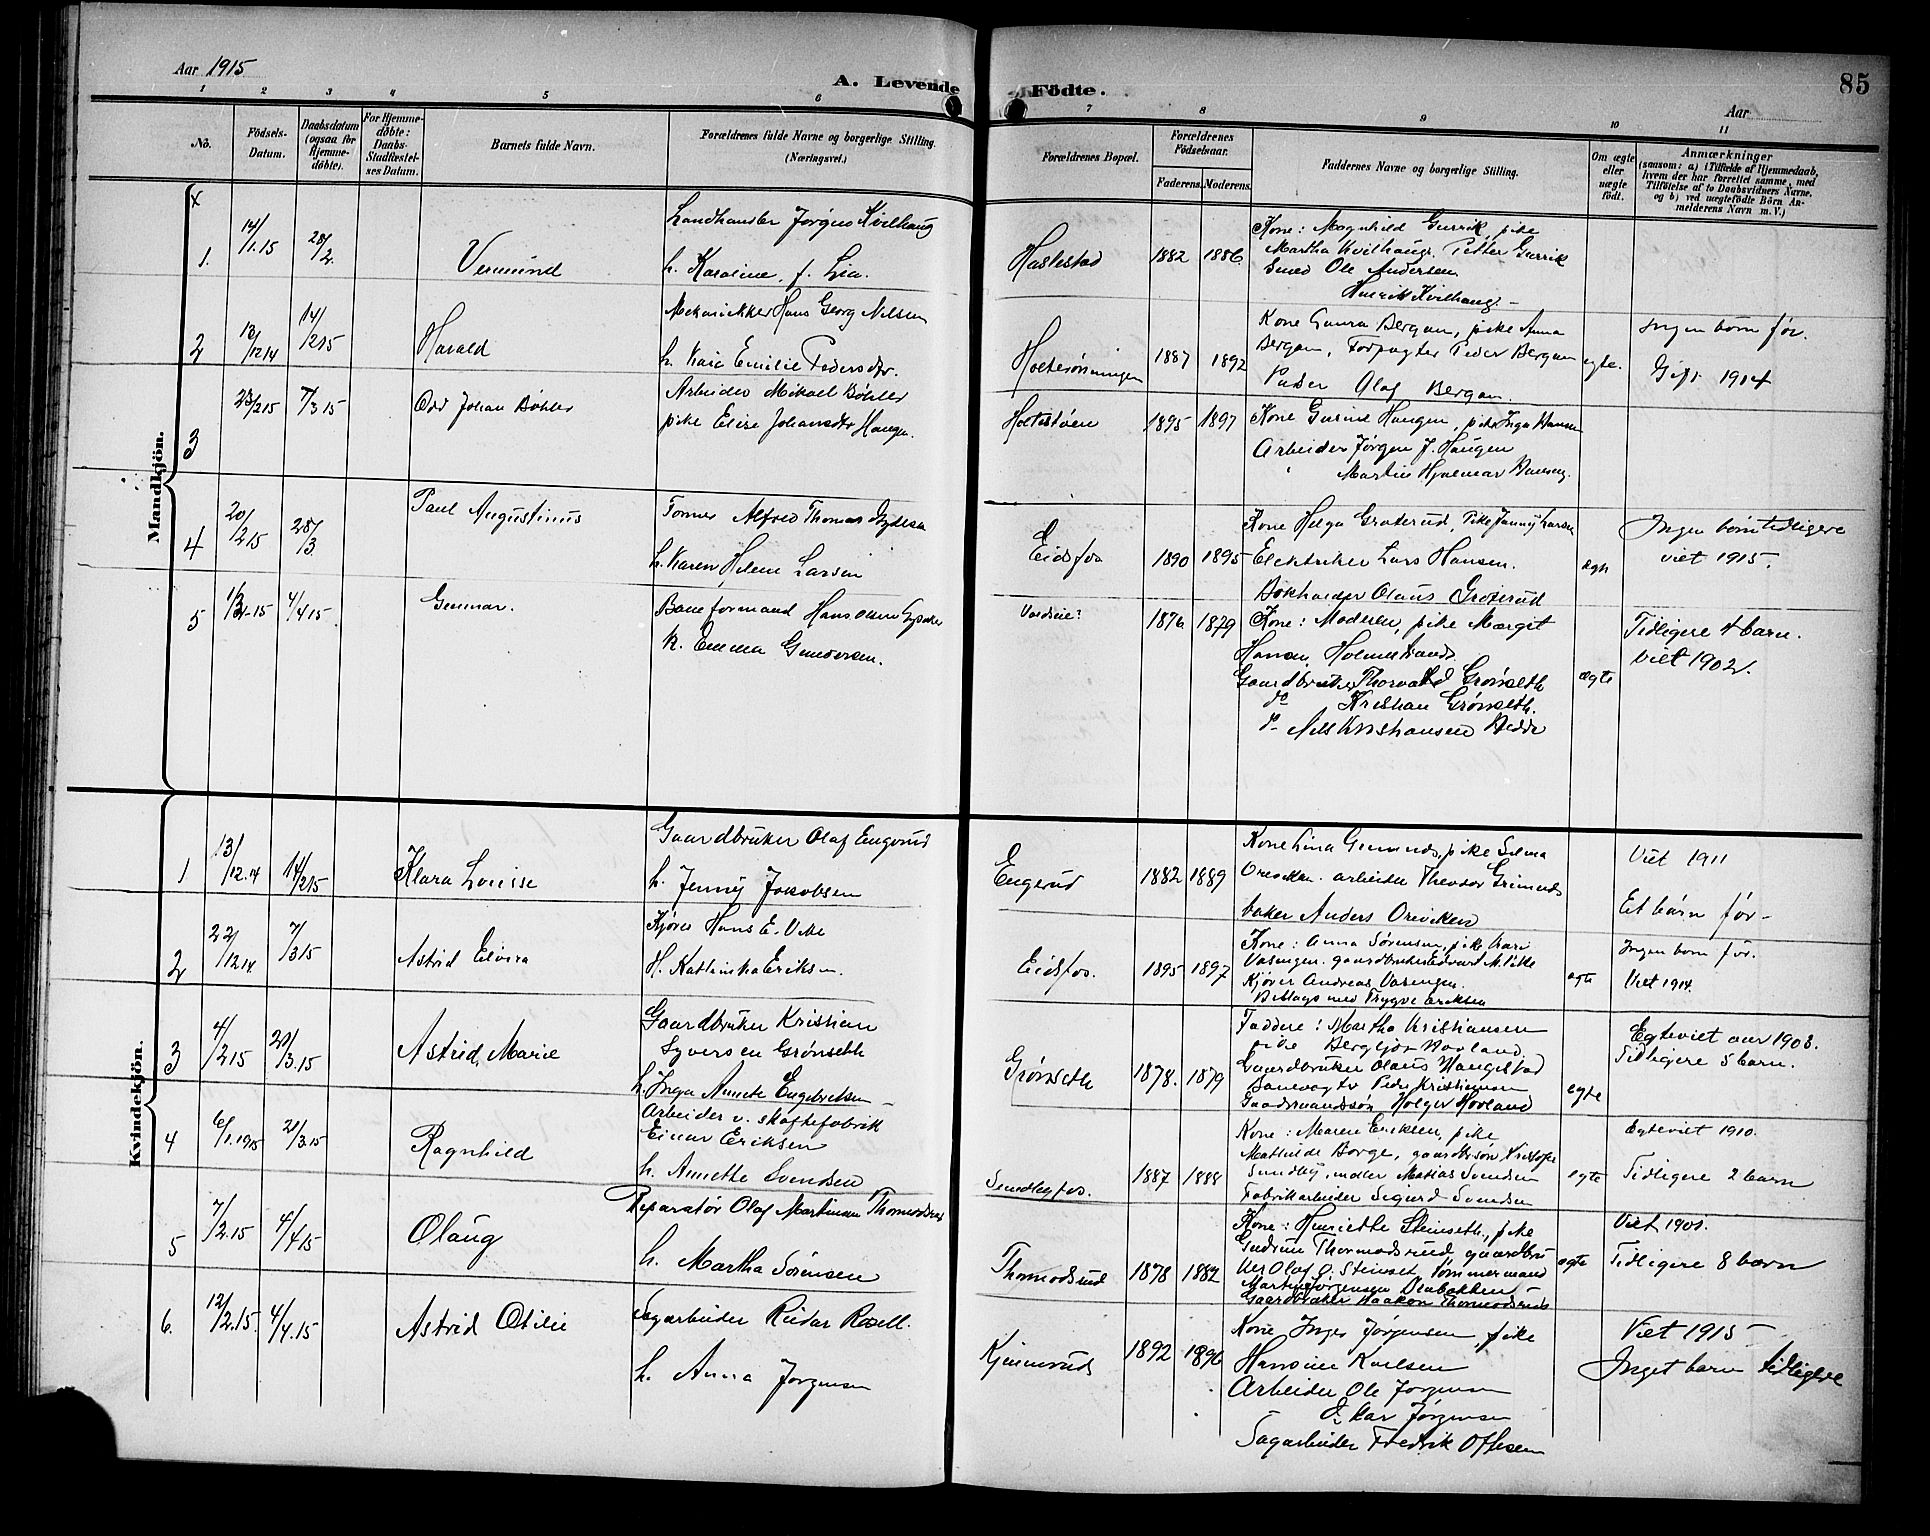 Aar 1915
A. Levende
Födte.
85
Aar
1 2 3 4 5 6 7 8 9 10 11
No.
Födsels-
Datum.
Daabsdatum
(ogsaa for
Hjemme-
döbte).
For Hjemme-
döbte:
Daabs-
Stadfæstel-
ses Datum.
Barnets fulde Navn.
Forældrenes fulde Navne og borgerlige Stilling.
(Næringsvei.)
Forældrenes Bopæl.
Forældrenes
Födselsaar.
Faderens. Moderens.
Faddernes Navne og borgerlige Stilling.
Om ægte
eller
uægte
født.
Anmærkninger
(saasom: a) i Tilfælde af Hjemmedaab,
hvem der har forrettet samme, med
Tilföielse af to Daabsvidners Navne,
og b) ved uægtefödte Börn An-
melderens Navn m. V.)
Mandkjön.
1. 14/1.15 28/2. Vermund
Landhandler Jørgen Kvilhaug
h. Karoline, f. Lia.
Haslestad 1882 1886
Kone: Magnhild Gurrik, pike
Martha Kvilhaug. Petter Gurrik
Smed Ole Andersen
Henrik Kvilhaug
2 13/12 14 14/2 15 Harald
Mekanikker Hans Georg Nilsen
h. Emilie Pedersdtr.
1887 1892
Kone Laura Bergan, pike Anna
Bergan, Forpagter Peder Bergan
Olaf Bergan.
egte.
Ingen børn før.
Gift 1914
3 23/2 15 7/3 15 Odd Johan Bøhler
Arbeider Mikael Bøhler
pike Elise Johansdtr Haugen.
1895 1897
Kone Gurine Haugen, pike Inga Hansen
Arbeider Jørgen J. Haugen
Martin Hjalmar Hansen.
4 20/2 15 28/3. Paul Augustinus
Former Alfred Thomas
h. Karen Helene Larsen
Eidsfos 1890 1895
Kone Helga Groterud, Pike Janny Larsen
Elektriker Lars Hansen.
Bokholder Olaus Groterud
ægte
Ingen børn tidligere
viet 1915.
5 4/4 15 Gunnar.
Baneformand Hans
h. Emma Gundersen.
1876 1879
Kone: Moderen, pike Margit
Hansen, Holmestrand.
Gaardbruker Thorvald Grønseth
do Kristian Grønseth.
do Nils Kristiansen
ægte
Tidligere 4 barn.
Viet 1902.
Kvindekjön.
1 13/12.14 14/2 15 Klara Lovisse
Gaardbruker Olaf Engerud
h. Jenny Jakobsen
Engerud 1882 1889
Kone Lina
arbeider Theodor
baker Anders Oreviken
Viet 1911
Et barn før
2 22/12 14 7/3 15 Astrid Elvira
Kjører Hans E.
H. Kathinka Eriksen.
Eidsfos. 1895 1897
Kone: Anna Sørensen, pike
Kjører Andreas
Trygve Eriksen
egte
Ingen børn før.
Viet 1914.
3 4/2 15 21/3.15 Astrid Marie
Gaardbruker Kristian
Syversen Grønseth
h. Inga Annette Engebretsen
Grønseth 1878. 1879
Faddere: Martha Kristiansen
pike Bergljot Hovland.
Gaardbruker Olaus Haugestad
Banevogter Peder Kristiansen
Gaardmandssøn Holger Hovland
egte
Egteviet aar 1903.
Tidligere 5 barn.
4 6/1.1915 21/3.15 Ragnhild
Arbeider v. skaftefabrik
Einar Eriksen
h. Annette Svendsen
Sundbyfos. 1887 1888
Kone: Maren Eriksen, pike
Mathilde Borge, gaardbr.søn
Sundby, møller Matias Svendsen
Fabrikarbeider Sigurd Svendsen
egte
Egteviet 1910.
Tidligere 2 barn
5 7/2.15 4/4 15 Olaug
Reparatør Olaf Martinsen Thormodsrud
h. Martha Sørensen
Thormodsrud 1878 1882
Kone: Henriette Steinseth, pike
Gudrun Thormodsrud, gaardbru
ker Olaf O. Steinset, tømmermand
Martin Jørgensen
Gaardbruker Haakon Thormodsrud
egte
Viet 1901.
Tidligere 8 barn
6. 12/2.15. 4/4.15 Astrid Otilie
Sagarbeider Reidar Rosell.
h. Anna Jørgensen
1892 1896
Kone Inger Jørgensen pike
Hansine Karlsen
Arbeider Ole Jørgensen
Oskar Jørgensen
Sagarbeider Fredrik Ottesen
Viet 1915
Inget barn tidligere